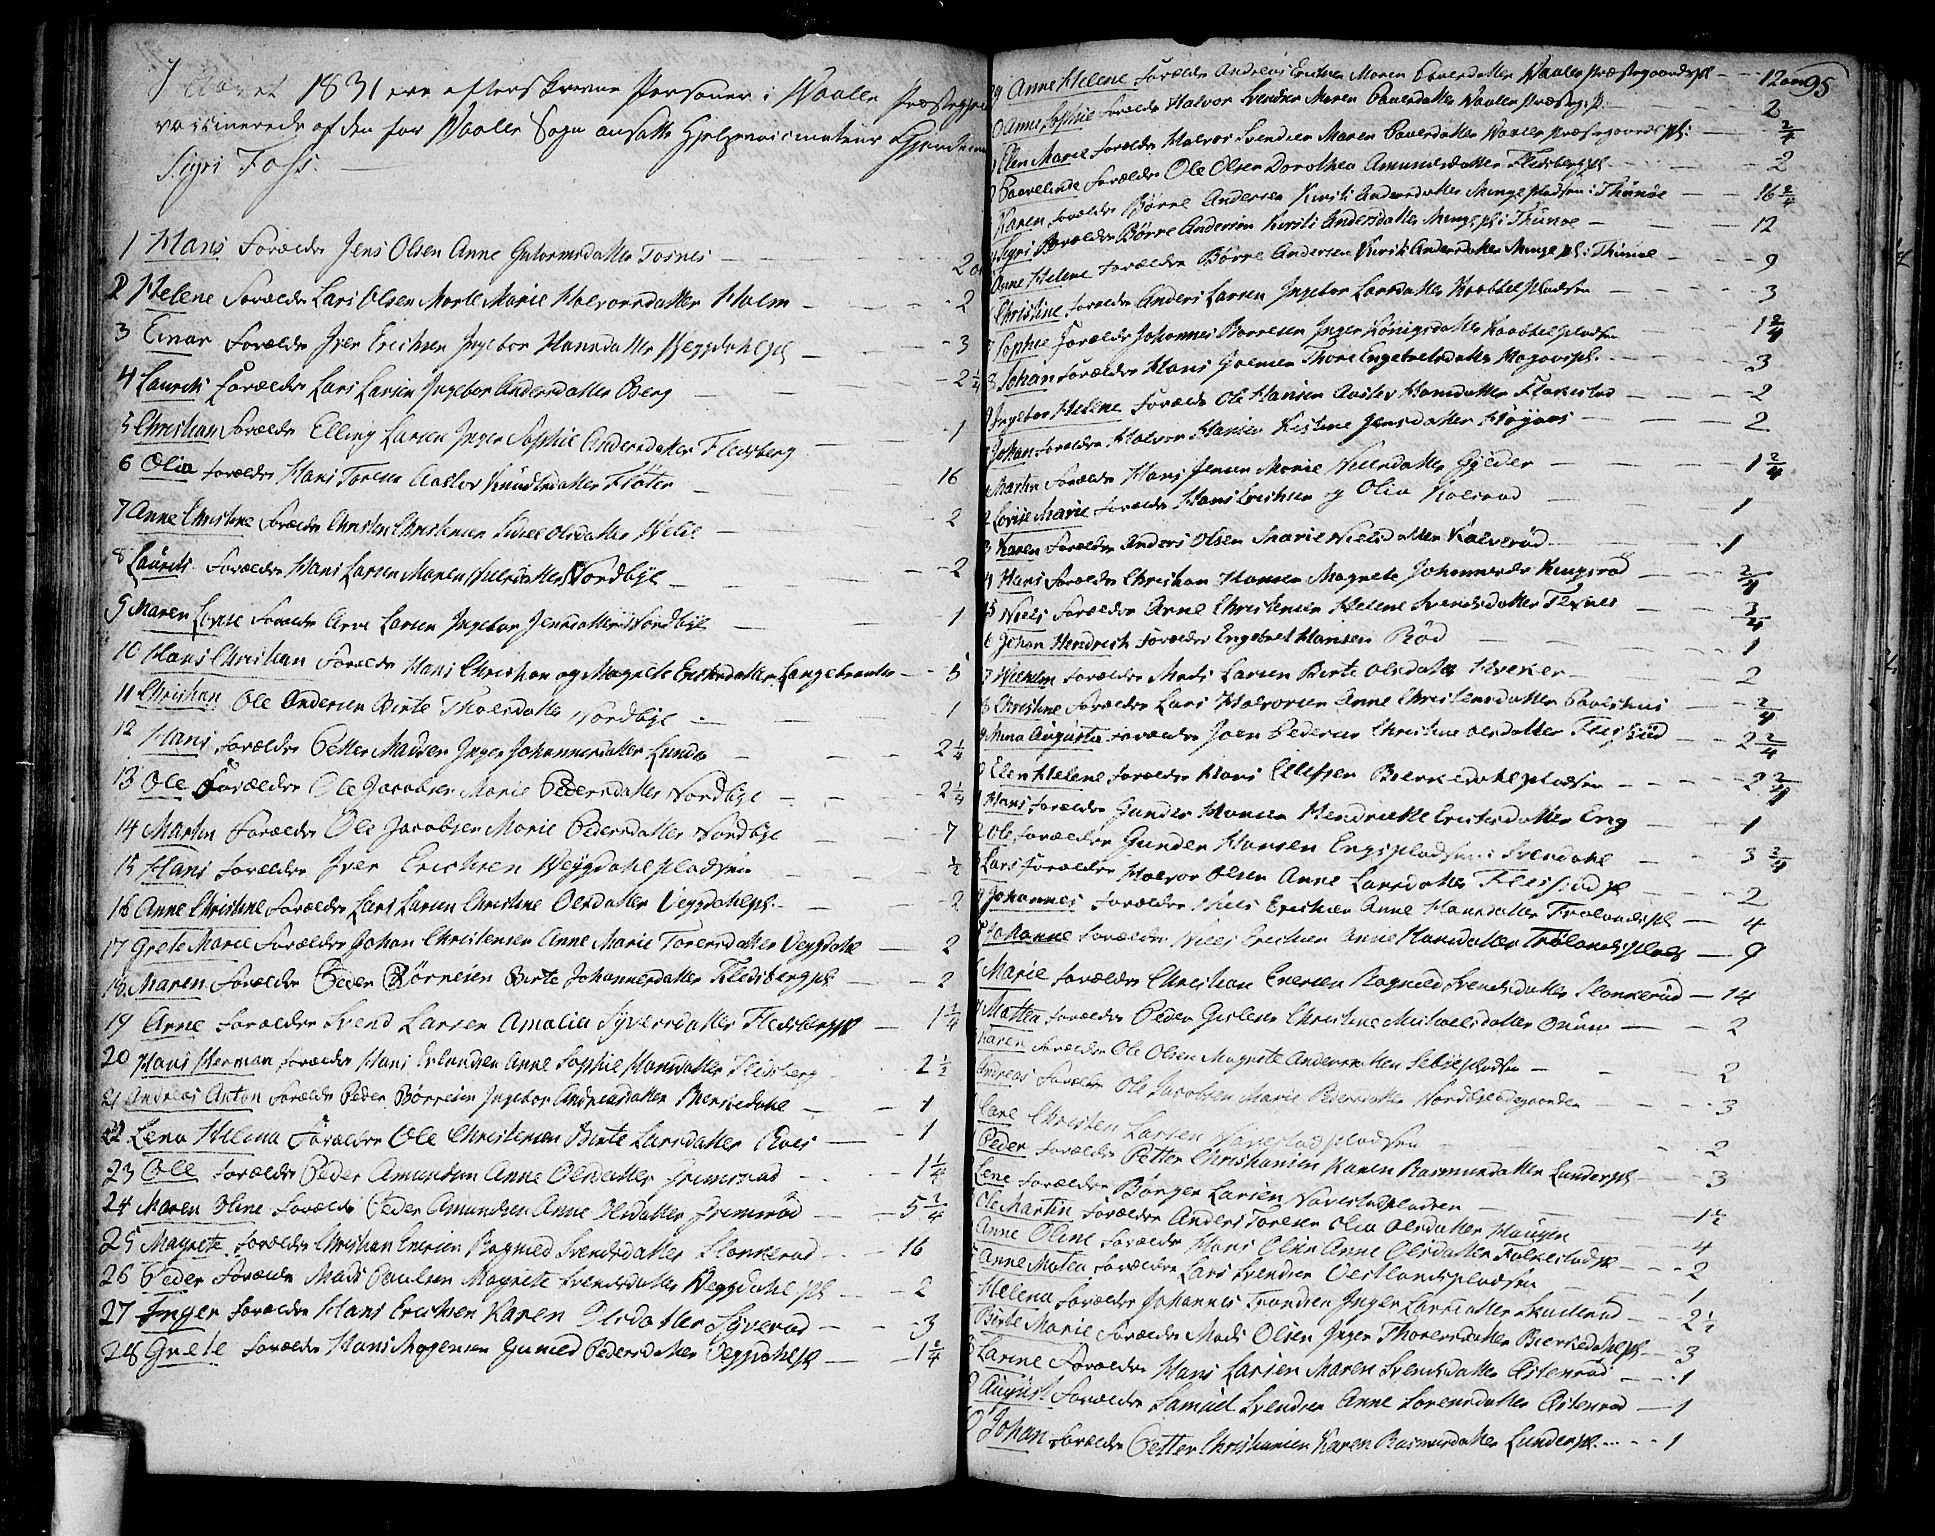 I Aaret 1831 ere efterskrevne Personer i Waaler Præstegjeld
vaccinerede af den for Waaler Sogn ansatte Hjelpevaccinateur
Sigri Foss.
1 Hans Forældre Jens Olsen Anne Gutormsdatter Tosnes — 2
2 Helene Forældre Lars Olsen Marte Marie Halvorsdatter Holm — 2
3 Einar Forældre Iver Erichsen Ingebor Hansdatter Weggdahlpl — 3
4 Laurits Forældre Lars Larsen Ingebor Andersdatter Berg — 2 1/4
5 Christian Forældre Elling Larsen Inger Sophie Andersdatter Fledsberg — 1
6 Olia Forældre Hans Toresen Aaslov Knudsdatter Fløter — 16
7 Anne Christine Forældre Christen Christensen Sidsel Olsdatter — 2
8 Laurits Forældre Hans Larsen Maren Nielsdatter Nordbye — 2
9 Maren Lovise Forældre Arve Larsen Ingebor Jensdatter Nordbye — 1
10 Hans Christian Forældre Hans Christian og Magrete Ericksdatter Langebraaten — 5
11 Christian Ole Andersen Birte Thoersdatter Nordbye — 1
12 Hans Forældre Petter Madsen Inger Johannesdatter Lunde — 2 1/4
13 Ole Forældre Ole Jacobsen Marie Pedersdatter Nordbye — 2 1/4
14 Martin Forældre Ole Jacobsen Marie Pedersdatter Nordbye — 7
15 Hans Forældre Iver Erichsen Weggdahlpladsen — 1/2
16 Anne Christine Forældre Lars Larsen Christine Olsdatter Veggdahlpl. — 2
17 Grete Marie Forældre Johan Christensen Anne Marie Toresdatter Veggdahl — 2
18 Maren Forældre Peder Børresen Birte Johannesdatter Fledsbergpl — 2
19 Anne Forældre Svend Larsen Amalia Syversdatter Fledsbergpl — 1 2/4
20 Hans Herman Forældre Hans Erlandsen Anne Sophie Hansdatter Fledsberg — 2 1/2
21 Andreas Anton Forældre Peder Børresen Ingebor Andreasdatter Berkedahl — 1
22 Lena Helena Forældre Ole Christensen Birte Larsdatter Roes — 1
23 Ole Forældre Peder Amundsen Anne Olsdatter — 1 1/4
24 Maren Oline Forældre Peder Amundsen Anne Olsdatter — 5 2/4
25 Magrete Forældre Christian Enersen Ragnild Svendsdatter Slonkerød — 16
26 Peder Forældre Mads Paulsen Magrete Svendsdatter Weggdahl pl — 2
27 Inger Forældre Hans Erichsen Karen Olsdatter Syverød — 3
28 Grete Forældre Hans Mogensen Gunild Pedersdatter Veggdahlpl — 1 2/4
95
9 Anne Helene Forældre Andreas Erichsen Maren Povelsdatter Waaler Præstegaardspl — 12
0 Anne Sophie Forældre Halvor Svendsen Maren Povelsdatter Waaler Præsteg. pl. — 2
Elen Marie Forældre Halvor Svendsen Maren Povelsdatter Waaler Præstegaards pl. — 2/4
Povelinde Forældre Ole Olsen Dorothea Amundsdatter Fledsbergpl — 2
Karen Forældre Børre Andersen Kirsti Andersdatter Mingepladsen i Thunøe — 16 2/4
Sigri Forældre Børre Andersen Kirsti Andersdatter Minge pl i Thunøe — 12
Anne Helene Forældre Børre Andersen Kirsti Andersdatter Minge pl. i Thunøe — 9
Christine Forældre Anders Larsen Ingebor Larsdatter Krabbelpladsen — 3
Sophie Forældre Johannes Børresen Inger Kønigsdatter Krabbelpladsen — 1 2/4
8 Johan Forældre Hans Thore Engebretsdatter — 3
9 Ingebor Helene Forældre Ole Hansen Aaslov Hansdatter Flakestad — 2
Johan Forældre Halvor Hansen Kistine Jensdatter — 2
Martin Forældre Hans Jensen Marie Nielsdatter — 1 2/4
2 Lovise Marie Forældre Hans Erichsen og Olia — 1
3 Karen Forældre Anders Olsen Marie Nielsdatter Kalverød — 1
4 Hans Forældre Christian Hansen Magrete Johannesdr — 2/4
5 Niels Forældre Arne Christensen Helene Svendsdatter — 2/4
6 Johan Hendrich Forældre Engebret Hansen Rød — 1
7 Wilhelm Forældre Mads Larsen Birte Olsdatter Kreker — 2
8 Christine Forældre Lars Halvorsen Anne Christensdatter Povelshus — 2/4
9 Anna Augusta Forældre Joen Pedersen Christine Olsdatter — 2 2/4
0 Elen Helene Forældre Hans Ellefsen Berkedahlpladsen — 2 2/4
1 Hans Forældre Gunder Hansen Hendriette Ericksdatter Eng — 1
2 Ole Forældre Gunder Hansen Engspladsen i Svendahl — 3 2/4
Lars Forældre Halvor Olsen Anne Larsdatter — 2
4 Johannes Forældre Niels Erichsen Anne Hansdatter Frølandspl — 4
Johanne Forældre Niels Erichsen Anne Hansdatter Frølandsplads — 9
Marie Forældre Christian Enersen Ragnild Svendsdatter Slonkerød — 14
Mattea Forældre Peder Christine Michaelsdatter — 2
Karen Forældre Ole Olsen Magrete Andersdatter — 2
Andreas Forældre Ole Jacobsen Marie Pedersdatter Nordbye — 3
Lane Christen Larsen Naverstadpladsen — 2
Peder Forældre Petter Christiansen Karen Rasmusdatter Lunderpl — 3
Lene Forældre Børger Larsen Naverstadpladsen — 1 1/2
Ole Martin Forældre Anders Toresen Olia Olsdatter Haugen
Anne Oline Forældre Hans Olsen Anne Olsdatter Folkestadpl — 4
Anne Matea Forældre Lars Svendsen Vestlandspladsen — 2
Helena Forældre Johannes Trondsen Inger Larsdatter — 1
Birte Marie Forældre Mads Olsen Inger Thoresdatter Berkedahlpl — 2 1/2
Larine Forældre Hans Larsen Maren Svendsdatter Østenrød — 3
August Forældre Samuel Svendsen Anne Sorensdatter Østenrød — 1
Johan Forældre Petter Christiansen Karen Rasmusdatter Lunderpl. — 1